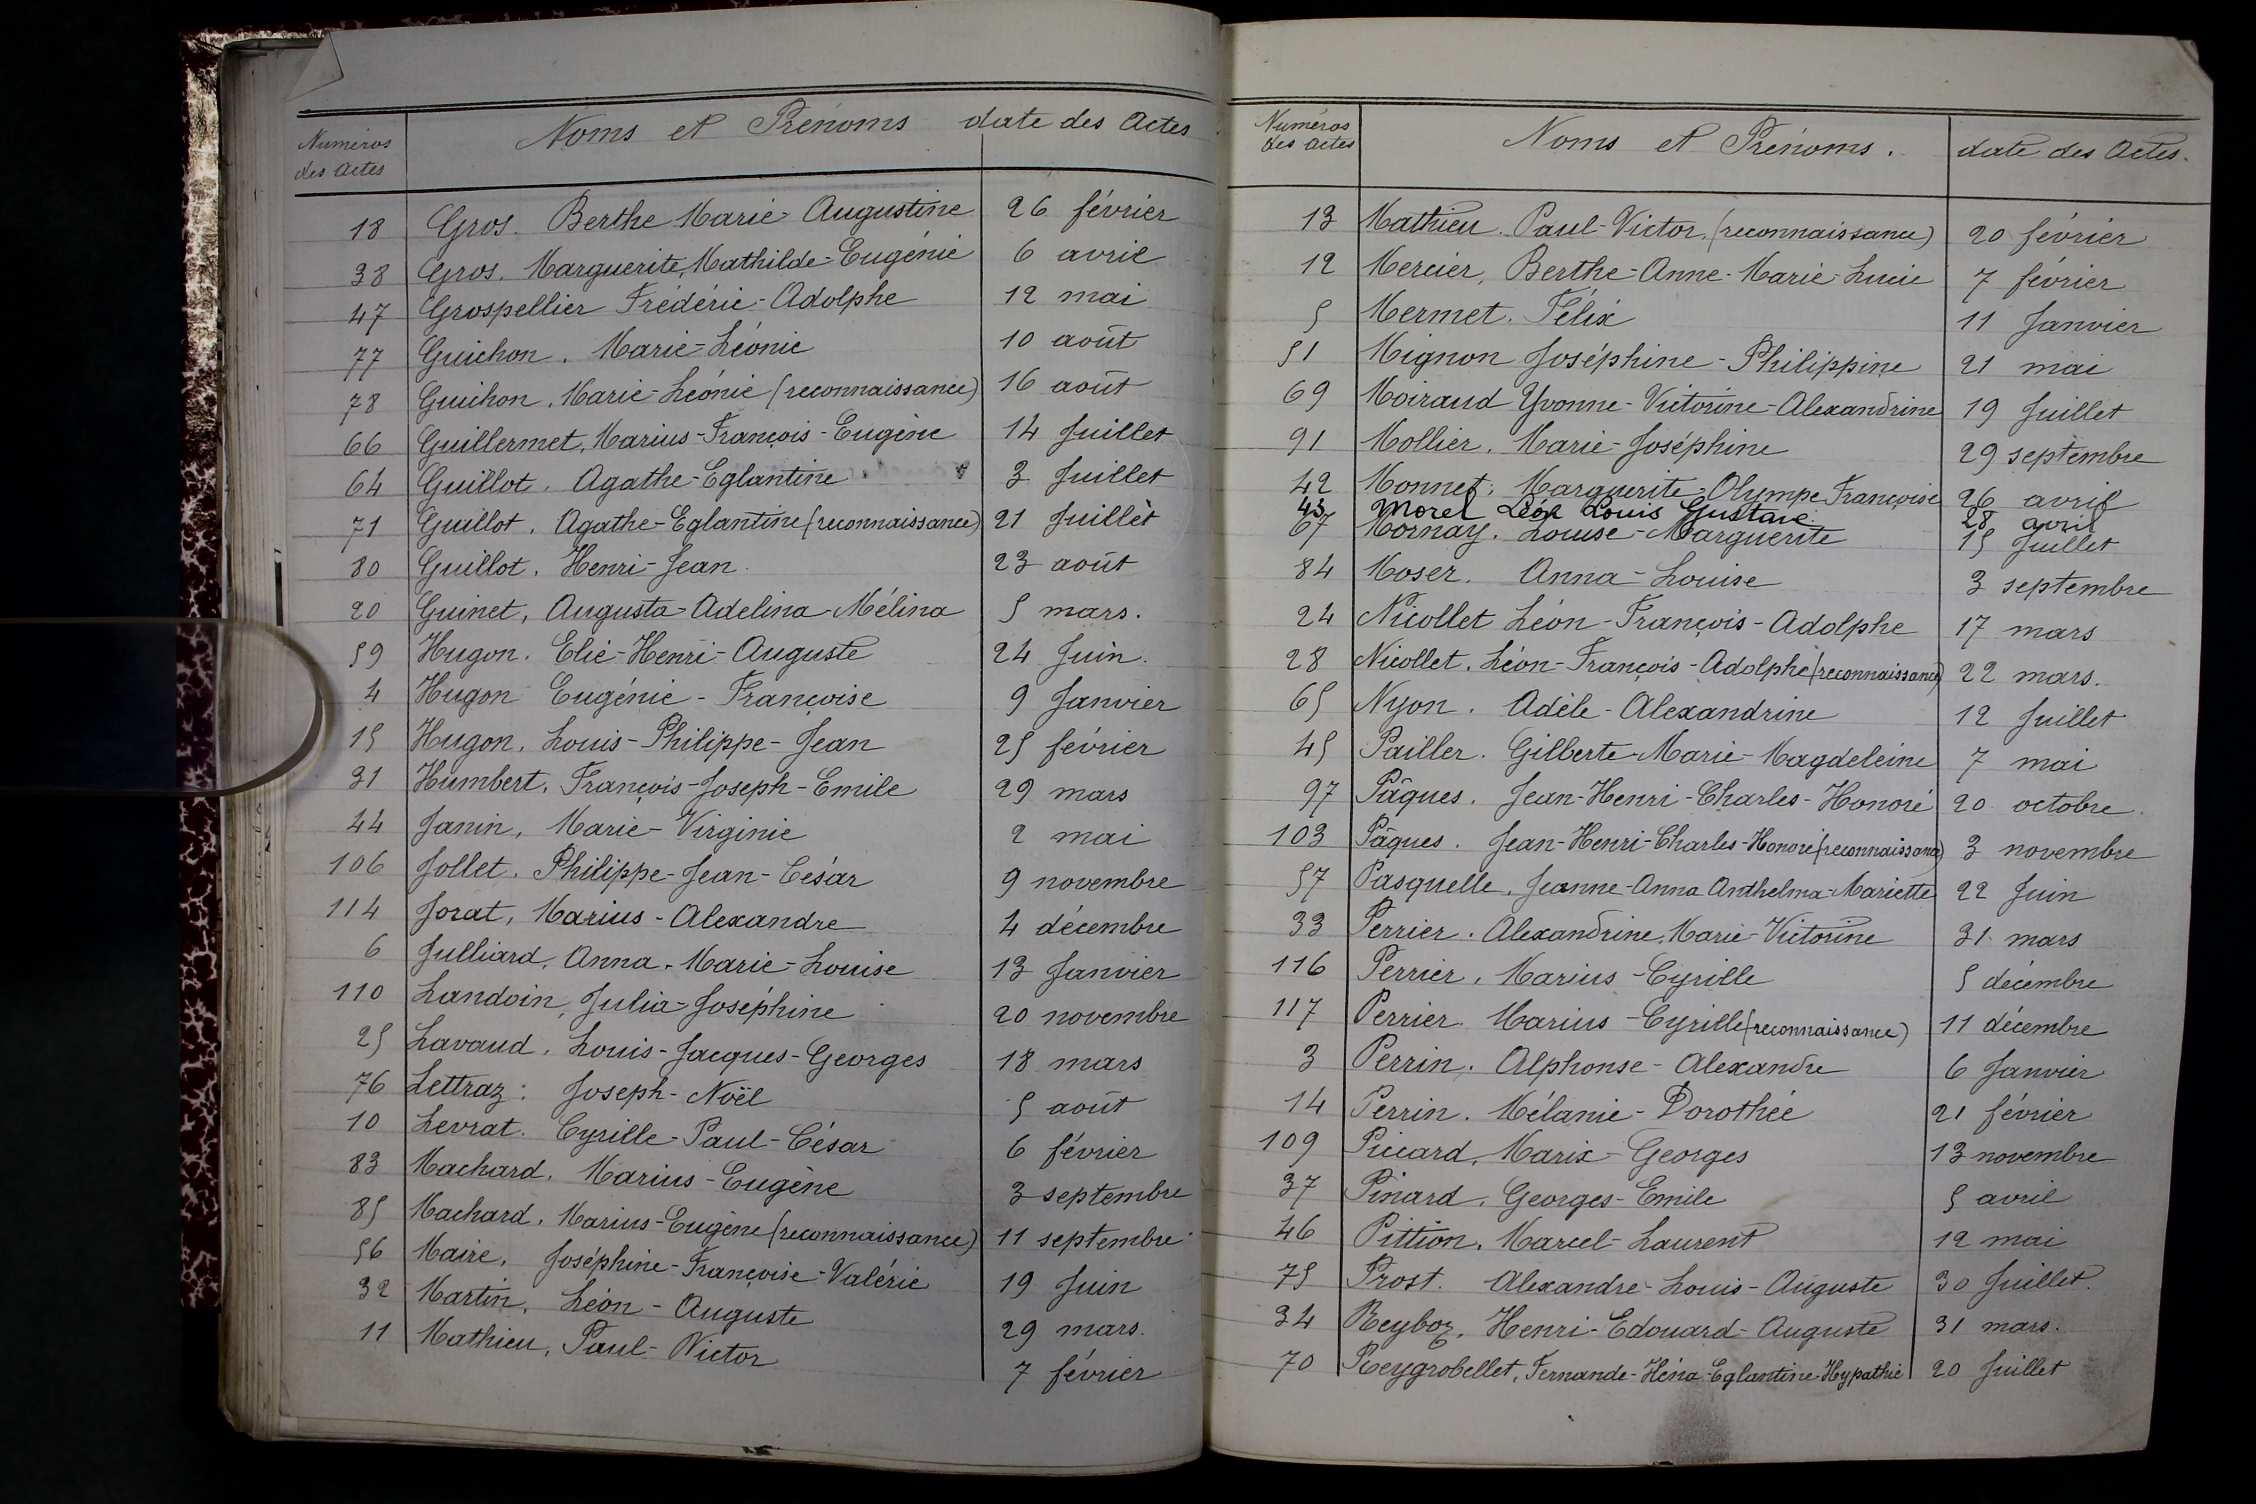 Numéros des actes Noms et Prénoms date des Actes
18 Gros. Berthe Marie Augustine 26 février
38 Gros. Marguerite, Mathilde-Eugénie 6 avril
47 Grospellier Frédéric-Adolphe 12 mai
77 Guichon. Marie-Léonie 10 août
78 Guichon. Marie-Léonie (reconnaissance) 16 août
66 Guillermet, Marius-François-Eugène 14 Juillet
64 Guillot. Agathe-Eglantine 3 Juillet
71 Guillot. Agathe-Eglantine (reconnaissance) 21 Juillet
80 Guillot. Henri-Jean 23 août
20 Guinet, Augusta-Adelina-Mélina 5 mars.
59 Hugon. Elie-Henri-Auguste 24 Juin.
4 Hugon Eugénie-Françoise 9 Janvier
15 Hugon. Louis-Philippe-Jean 25 février
31 Humbert. François-Joseph-Emile 29 mars
44 Janin, Marie-Virginie 2 mai
106 Jollet. Philippe-Jean-César 9 novembre
114 Jorat, Marius-Alexandre 4 décembre
6 Julliard, Anna-Marie-Louise 13 Janvier
110 Landoin, Julia-Joséphine 20 novembre
25 Lavaud. Louis-Jacques-Georges 18 mars
76 Lettraz: Joseph-Noël 5 août
10 Levrat. Cyrille-Paul-César 6 février
83 Machard. Marius-Eugène 3 septembre
85 Machard. Marius-Eugène (reconnaissance) 11 septembre
56 Maire, Joséphine-Françoise-Valérie 19 Juin
32 Martin, Léon-Auguste 29 mars.
11 Mathieu, Paul-Victor 7 février
Numéros des actes Noms et Prénoms. date des Actes.
13 Mathieu. Paul-Victor. (reconnaissance) 20 février
12 Mercier, Berthe-Anne-Marie-Lucie 7 février
5 Mermet. Félix 11 Janvier
51 Mignon Joséphine-Philippine 21 mai
69 Moiraud Yvonne-Victorine-Alexandrine 19 Juillet
91 Mollier. Marie-Joséphine 29 septembre
42 Monnet. Marguerite-Olympe Françoise 26 avril
43 Morel Léon Louis Gustave 28 avril
67 Mornay. Louise-Marguerite 15 Juillet
84 Moser. Anna-Louise 3 septembre
24 Nicollet Léon-François-Adolphe 17 mars
28 Nicollet. Léon-François-Adolphe (reconnaissance) 22 mars.
65 Nyon. Adèle-Alexandrine 12 Juillet
45 Pailler. Gilberte-Marie-Magdeleine 7 mai
97 Pâques. Jean-Henri-Charles-Honoré 20 octobre.
103 Pâques. Jean-Henri-Charles-Honoré (reconnaissance) 3 novembre
57 Pasquelle. Jeanne-Anna Anthelma-Mariette 22 Juin
33 Perrier. Alexandrine, Marie-Victorine 31 mars
116 Perrier. Marius-Cyrille 5 décembre
117 Perrier. Marius-Cyrille (reconnaissance) 11 décembre
3 Perrin. Alphonse-Alexandre 6 Janvier
14 Perrin. Mélanie-Dorothée 21 février
109 Piccard. Marix-Georges 13 novembre
37 Pinard. Georges-Emile 5 avril
46 Pittion. Marcel-Laurent 12 mai
75 Prost. Alexandre-Louis-Auguste 30 Juillet.
34 Reyboz. Henri-Edouard-Auguste 31 mars.
70 Reygrobellet, Fernande-Héna-Eglantine-Hypathie 20 Juillet